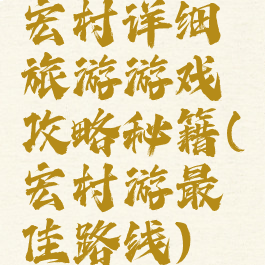 宏村详细
旅游游戏
攻略秘籍(
宏村游最
佳路线)